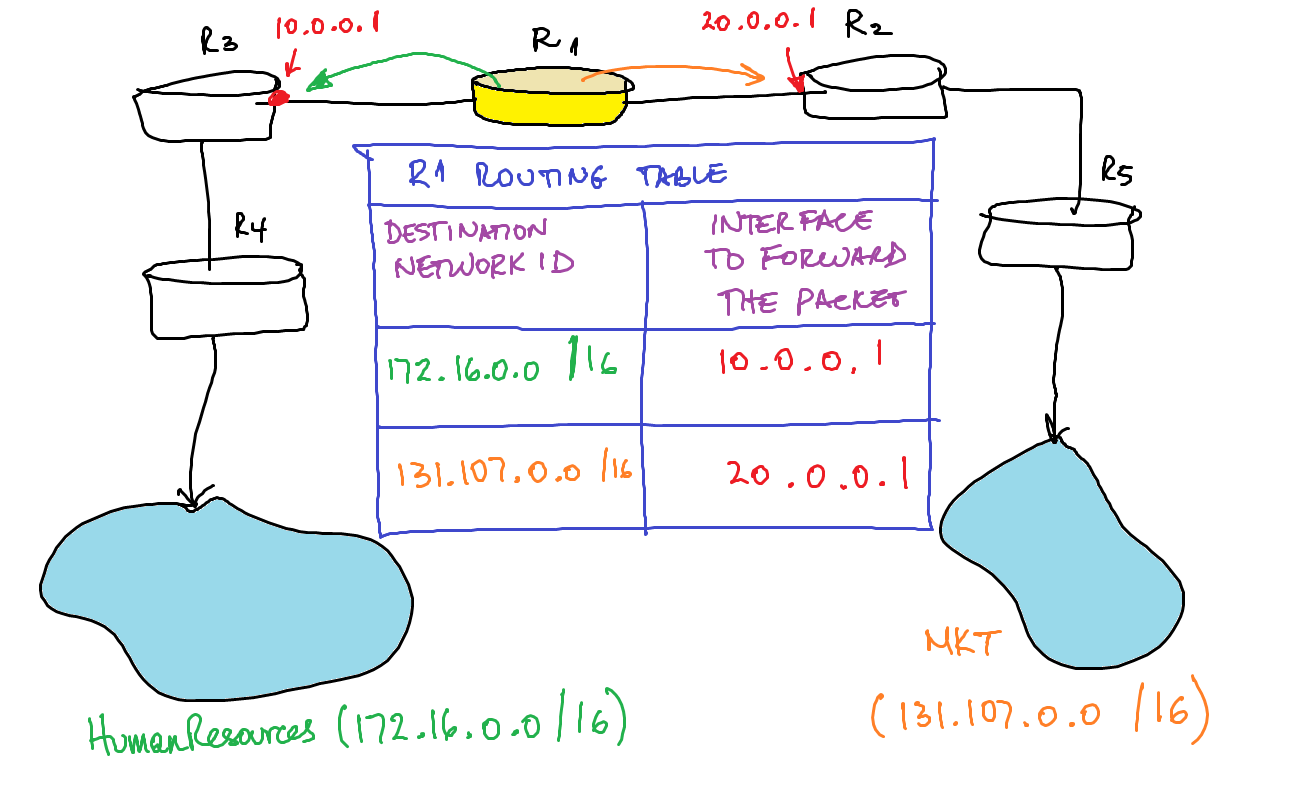 R3
10.0.0.1
R1
20.0.0.1
R2
R4
R5
R1 ROUTING TABLE
DESTINATION
NETWORK ID
INTERFACE
TO FORWARD
THE PACKET
172.16.0.0 /16
10.0.0.1
131.107.0.0 /16
20.0.0.1
HumanResources (172.16.0.0/16)
MKT
(131.107.0.0 /16)